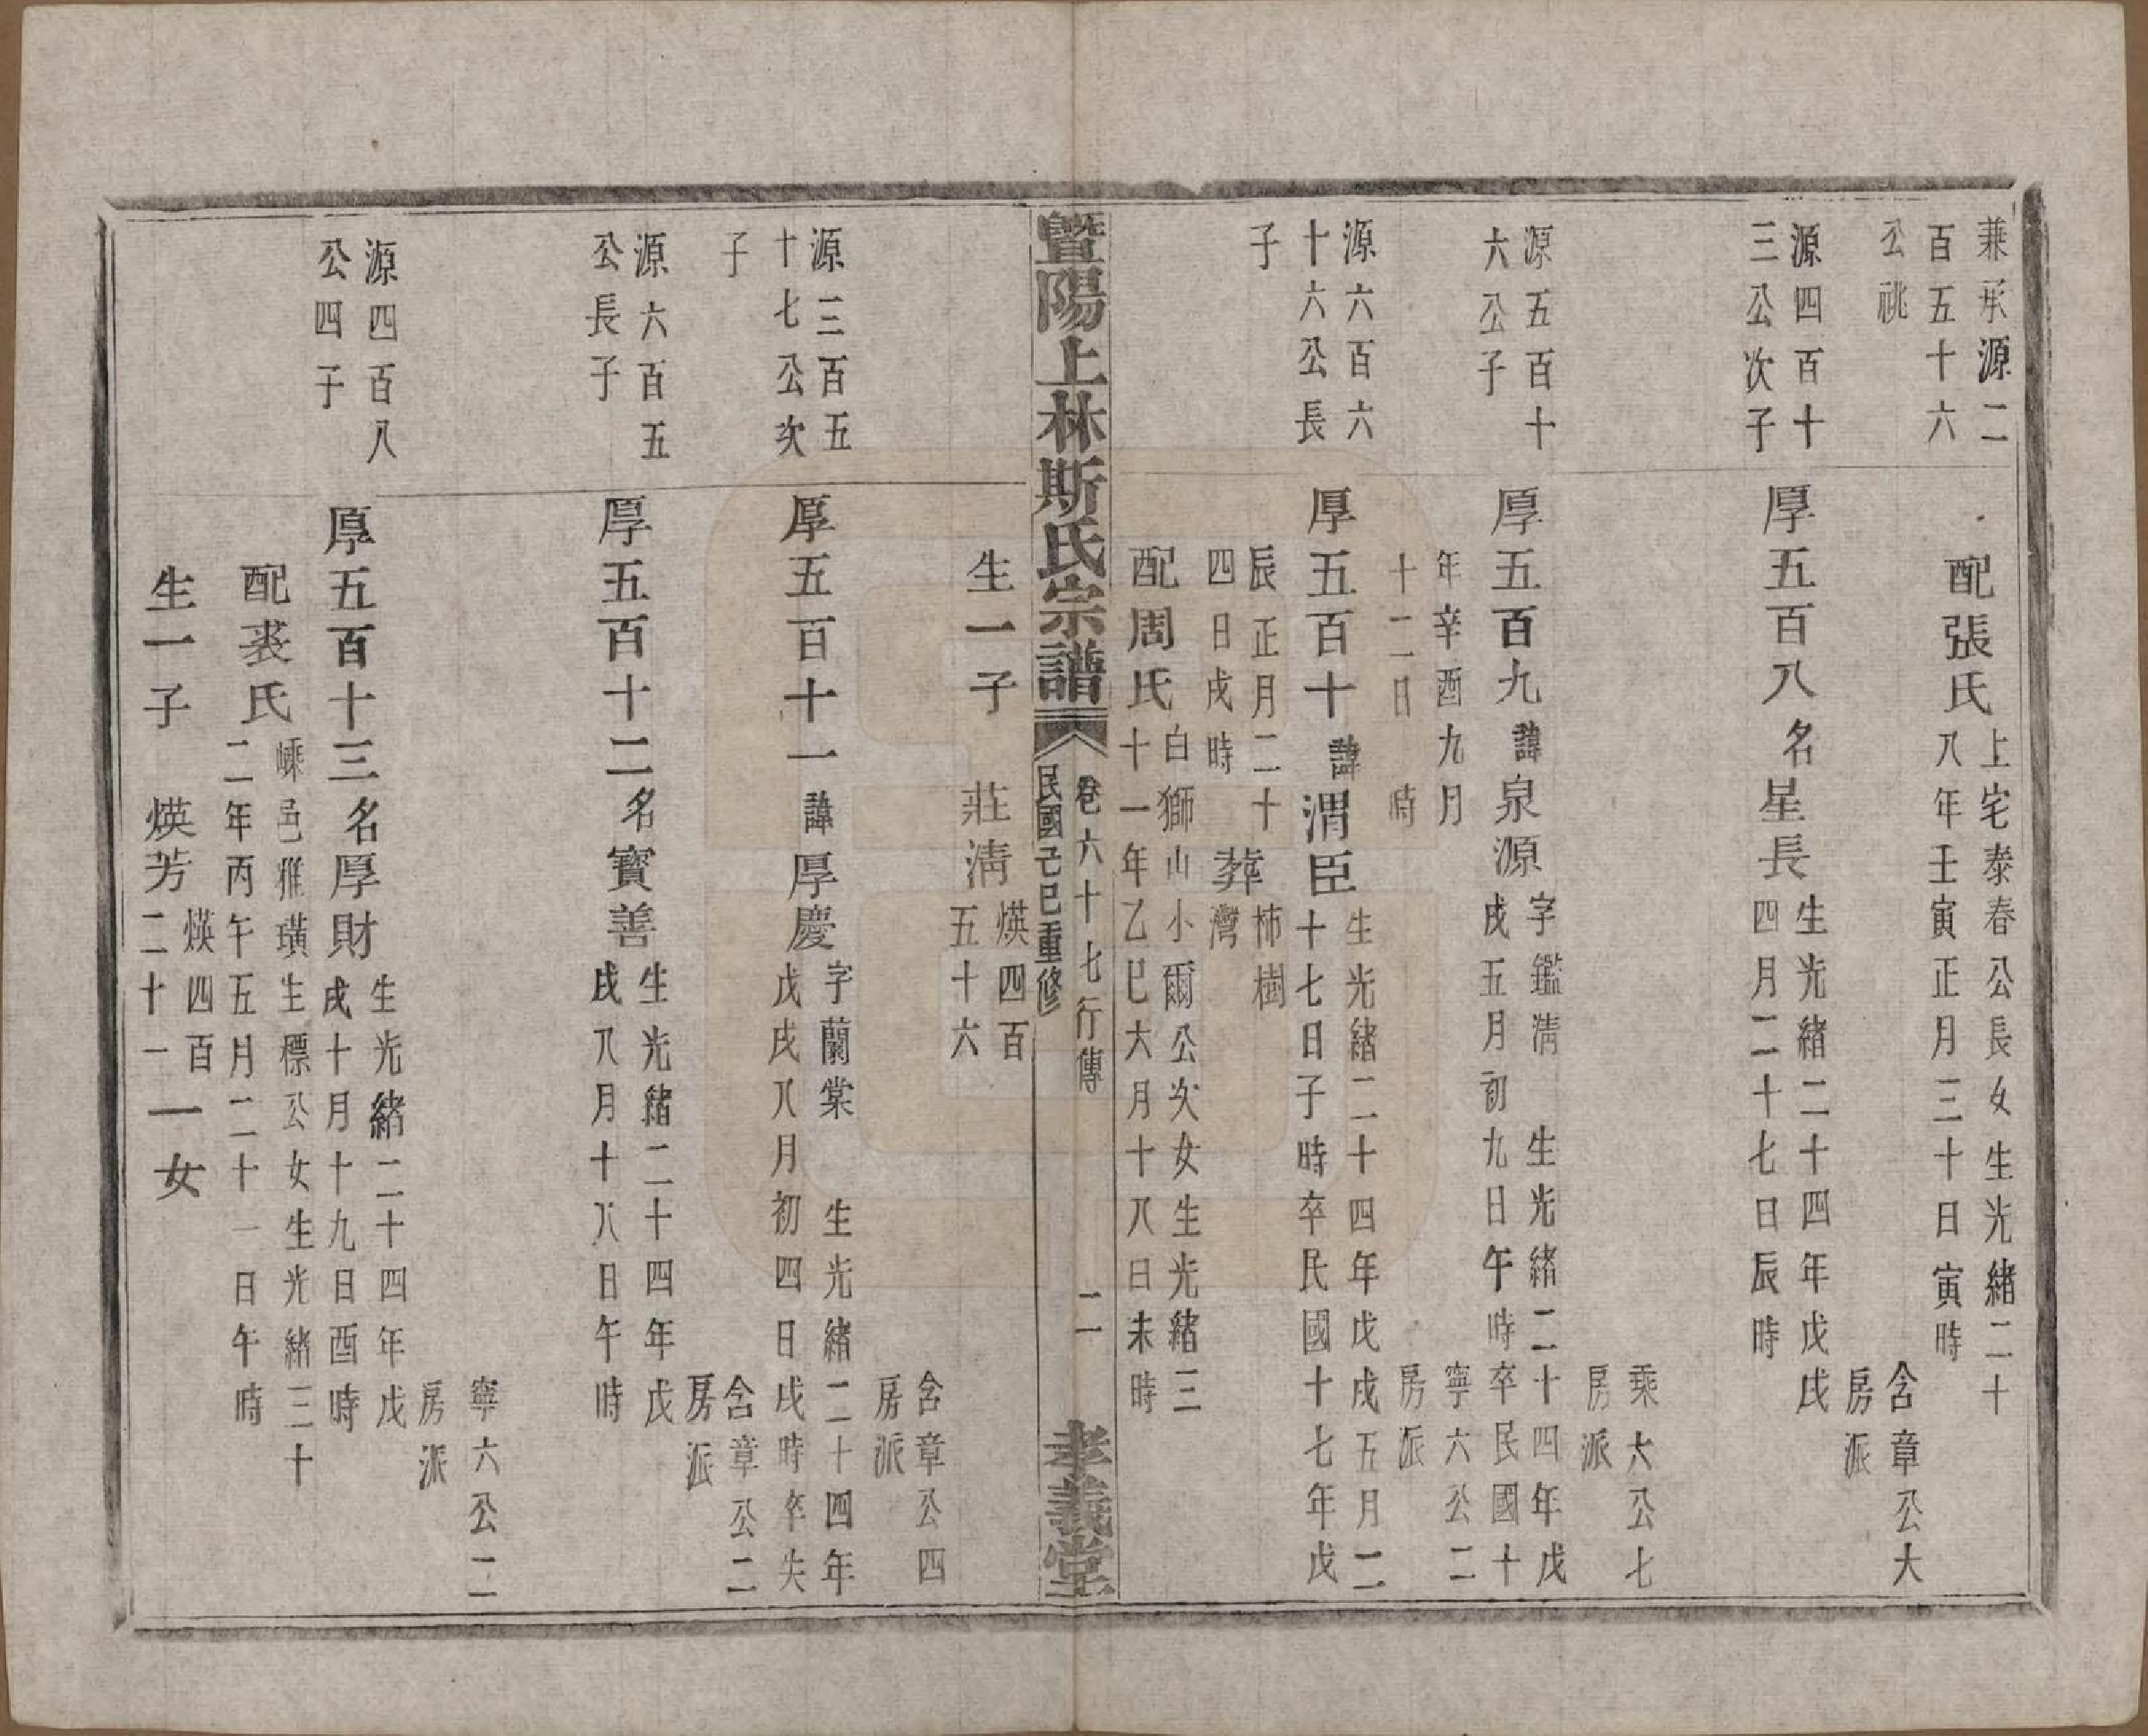 兼承源二
百五十六
公祧
配張氏
上宅泰春公長女生光緒二十
八年壬寅正月三十日寅時
含章公大
房派
源四百十
三公次子
厚五百八
名
星長
生光緒二十四年戊戌
四月二十七日辰時
乘大公七
房派
源五百十
六公子
厚五百九
諱
泉源
字鑑淸　生光緒二十四年戊
戌五月初九日午時卒民國十
年辛酉九月
十二日　時
寧六公二
房派
源六百六
十六公長
子
厚五百十
諱
渭臣
生光緒二十四年戊戌五月二
十七日子時卒民國十七年戊
辰正月二十
四日戌時
葬
柿樹
灣
配周氏
白獅山小爾公次女生光緒三
十一年乙巳六月十八日未時
暨陽上林斯氏宗譜
卷六十七行傳
民國己巳重修
二
孝義堂
生一子　莊淸
煐四百
五十六
含章公四
房派
源三百五
十七公次
子
厚五百十一
諱
厚慶
字蘭棠　生光緒二十四年
戊戌八月初四日戌時卒失
含章公二
房派
源六百五
公長子
厚五百十二
名
寶善
生光緒二十四年戊
戌八月十八日午時
寧六公二
房派
源四百八
公四子
厚五百十三
名
厚財
生光緒二十四年戊
戌十月十九日酉時
配裘氏
嵊邑雅璜生標公女生光緒三十
二年丙午五月二十一日午時
生一子　煐芳
煐四百
二十一
一女